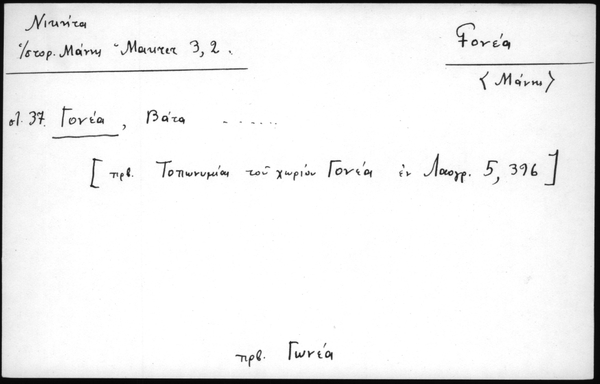 Νικήτα
Ἱστορ. Μάνης Μακτετ 3, 2.
Γονέα
〈Μάνης〉
σλ. 37. Γονέα, Βάτα ......
[πρβ. Τοπωνυμίαι τοῦ χωρίου Γονέα ἐν Λαογρ. 5, 396]
πρβ. Γωνέα